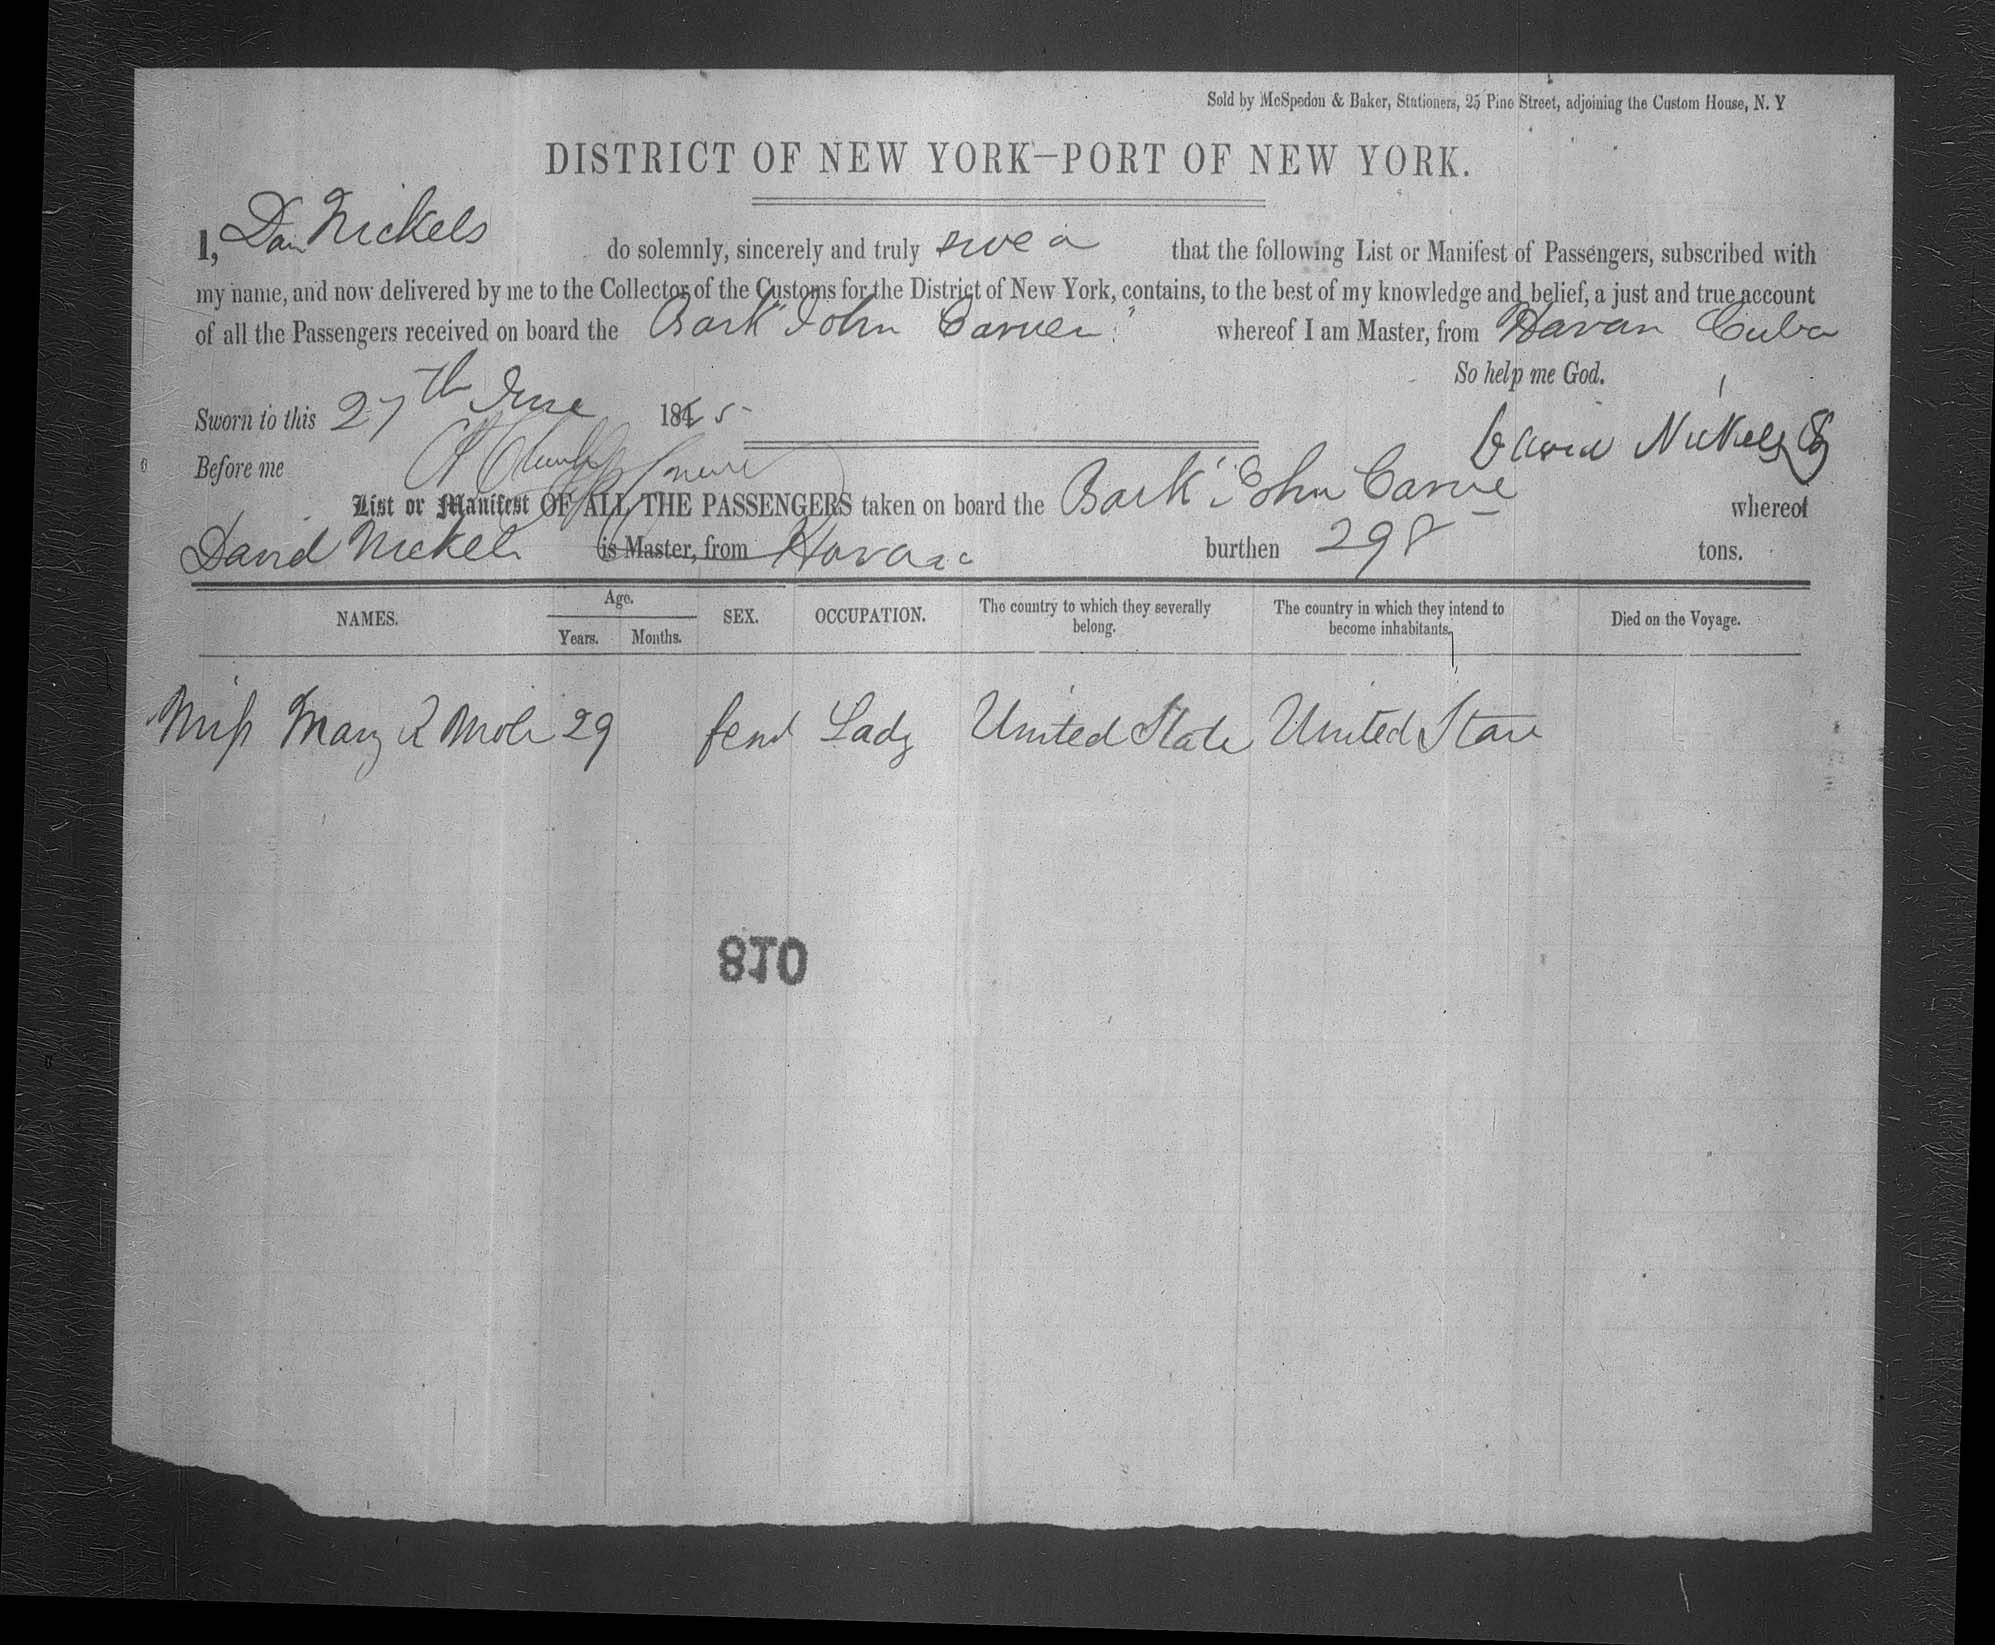 Sold by McSpedon & Baker, Stationers, 25 Pine Street, adjoining the Custom House, N. Y
DISTRICT OF NEW YORK—PORT OF NEW YORK.
I, Dav Nickels do solemnly, sincerely and truly swea that the following List or Manifest of Passengers, subscribed with
my name, and now delivered by me to the Collector of the Customs for the District of New York, contains, to the best of my knowledge and belief, a just and true account
of all the Passengers received on board the Bark "John Carver" whereof I am Master, from Havan Cuba
So help me God.
Sworn to this 27th June 184 5
David Nickels
Before me
List or Manifest OF ALL THE PASSENGERS taken on board the Bark "John Carve whereof
David Nickels is Master, from Havana burthen 298 tons.
NAMES. Age. Years. Months. SEX. OCCUPATION. The country to which they severally belong. The country in which they intend to become inhabitants. Died on the Voyage.
Miss Mary 29 fem Lady United State United State
810